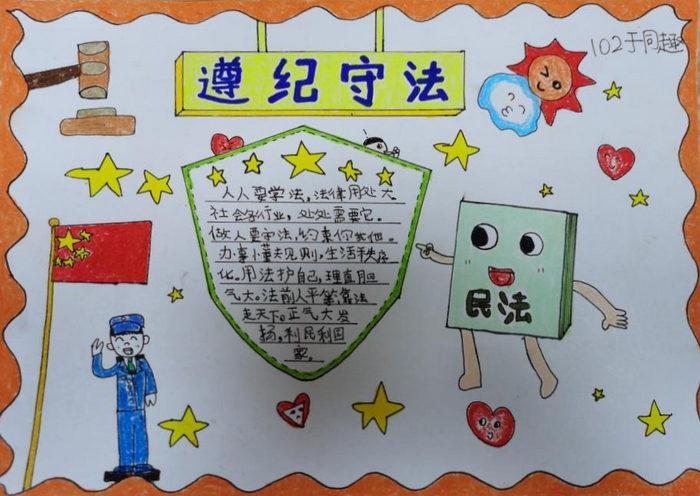 遵纪守法
102于同趣
人人要学法，法律用处大
社会各行业，处处需要它。
做人要守法，约束你我他。
办事懂规则，生活秩序
化。用法护自己，理直胆
气大。法前人平等，靠法
走天下。正气大发
扬，利民利国
家。
民法